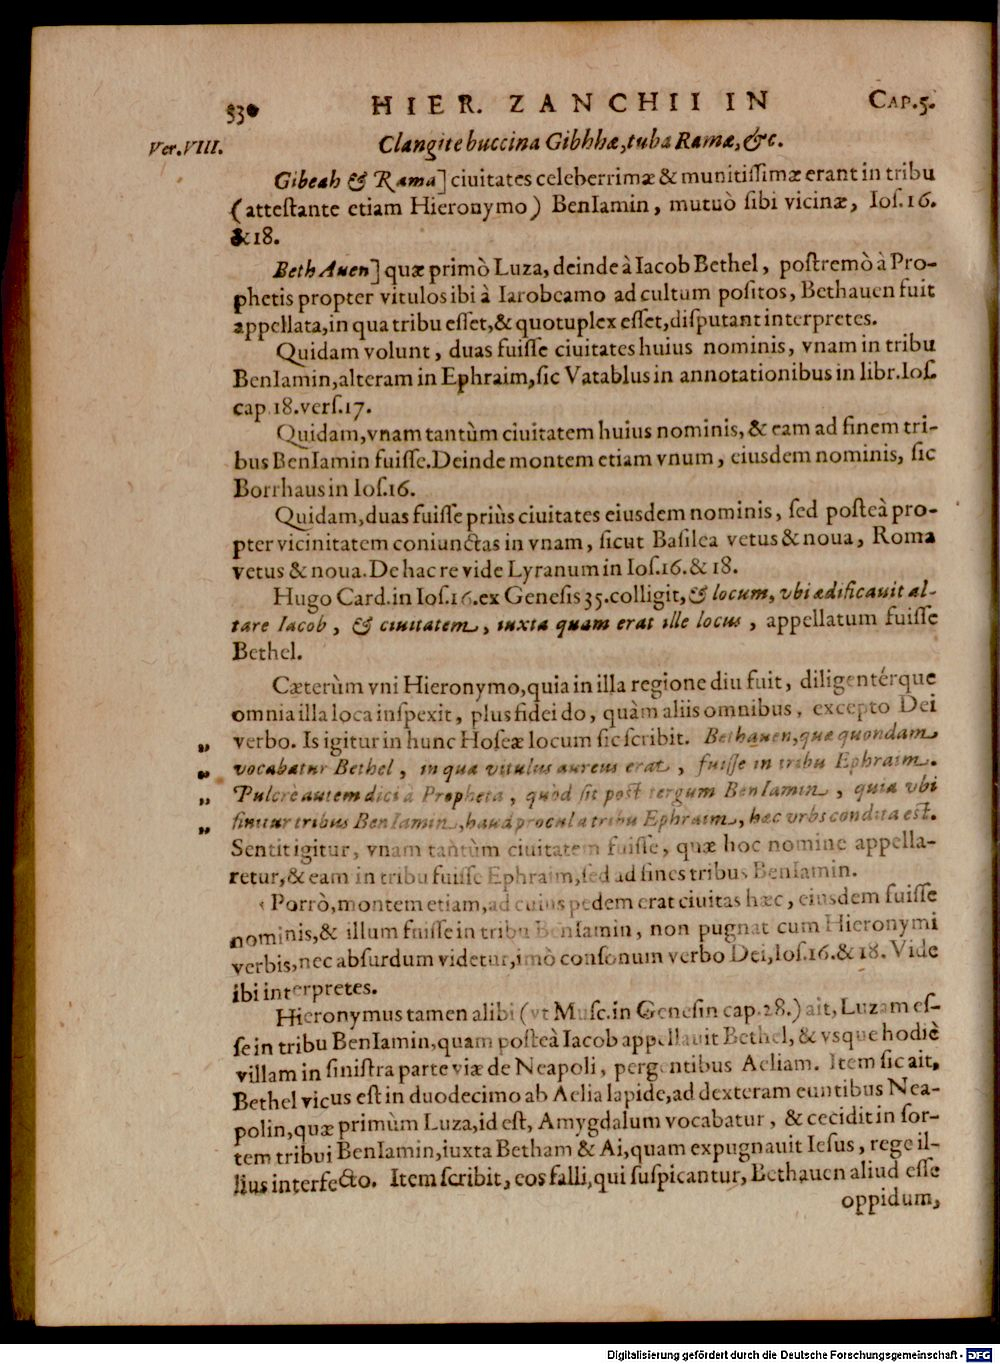 330 HIER. ZANCHII IN CAP.5.
Ver.VIII. Clangite buccina Gibhhæ, tuba Ramæ, &c.
Gibeah & Rama] ciuitates celeberrimæ & munitissimæ erant in tribu
(attestante etiam Hieronymo) BenIamin, mutuò sibi vicinæ, Ios.16.
&18.
BethAuen] quæ primò Luza, deinde à Iacob Bethel, postremò à Pro-
phetis propter vitulos ibi à Iarobeamo ad cultum positos, Bethauen fuit
appellata, in qua tribu esset, & quotuplex esset, disputant interpretes.
Quidam volunt, duas fuisse ciuitates huius nominis, vnam in tribu
BenIamin, alteram in Ephraim, sic Vatablus in annotationibus in libr.Ios.
cap.18.vers.17.
Quidam, vnam tantùm ciuitatem huius nominis, & eam ad finem tri-
bus BenIamin fuisse. Deinde montem etiam vnum, eiusdem nominis, sic
Borrhaus in Ios.16.
Quidam, duas fuisse priùs ciuitates eiusdem nominis, sed posteà pro-
pter vicinitatem coniunctas in vnam, sicut Basilea vetus & noua, Roma
vetus & noua. De hac re vide Lyranum in Ios.16.& 18.
Hugo Card. in Ios.16.ex Genesis 35.colligit, & locum, vbi ædificauit al-
tare Iacob, & ciuitatem, iuxta quam erat ille locus, appellatum fuisse
Bethel.
Cæterùm vni Hieronymo, quia in illa regione diu fuit, diligentérque
omnia illa loca inspexit, plus fidei do, quàm aliis omnibus, excepto Dei
verbo. Is igitur in hunc Hoseæ locum sic scribit. Bethauen, quæ quondam
„ vocabatur Bethel, in qua vitulus aureus erat, fuisse in tribu Ephraim.
„ Pulcrè autem dici à Propheta, quòd sit post tergum BenIamin, quia vbi
„ finitur tribus BenIamin, haud procul a tribu Ephraim, hæc vrbs condita est.
Sentit igitur, vnam tantùm ciuitatem fuisse, quæ hoc nomine appella-
retur, & eam in tribu fuisse Ephraim, sed ad fines tribus BenIamin.
Porrò, montem etiam, ad cuius pedem erat ciuitas hæc, eiusdem fuisse
nominis, & illum fuisse in tribu BenIamin, non pugnat cum Hieronymi
verbis, nec absurdum videtur, imò consonum verbo Dei, Ios.16.& 18. Vide
ibi interpretes.
Hieronymus tamen alibi (vt Musc.in Genesin cap.28.) ait, Luzam es-
se in tribu BenIamin, quam posteà Iacob appellauit Bethel, & vsque hodiè
villam in sinistra parte viæ de Neapoli, pergentibus Aeliam. Item sic ait,
Bethel vicus est in duodecimo ab Aelia lapide, ad dexteram euntibus Nea-
polin, quæ primùm Luza, id est, Amygdalum vocabatur, & cecidit in sor-
tem tribui BenIamin, iuxta Betham & Ai, quam expugnauit Iesus, rege il-
lius interfecto. Item scribit, eos falli, qui suspicantur, Bethauen aliud esse
oppidum,
Digitalisierung gefördert durch die Deutsche Forschungsgemeinschaft - DFG